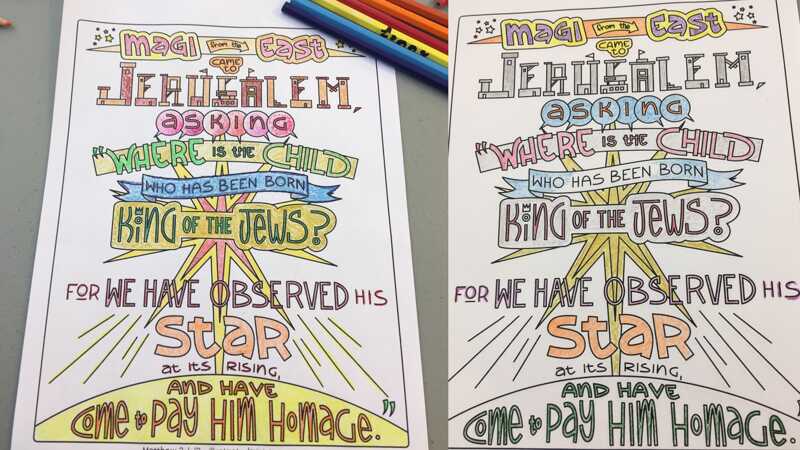 MAGI from the EAST
CAME to
JERUSALEM,
ASKING
"WHERE is the CHILD
WHO HAS BEEN BORN
KiNG OF THE JEWS?
FOR WE HAVE OBSERVED HIS
StaR
at its RISING,
AND HAVE
COME to PAY HIM HOMAGE."
MAGI from the EAST
CAME to
JERUSALEM,
ASKING
"WHERE is the CHILD
WHO HAS BEEN BORN
KiNG OF THE JEWS?
FOR WE HAVE OBSERVED HIS
StaR
at its RISING,
AND HAVE
COME to PAY HIM HOMAGE.